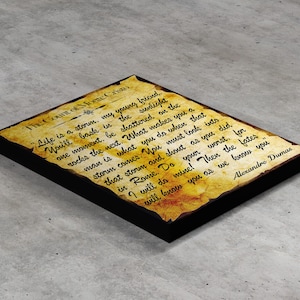 The Count of Monte Cristo
"Life is a storm, my young friend.
You'll bask in the sunlight
one moment, be shattered on the
rocks the next. What makes you a
man is what you do when that
storm comes. You must look into
that storm and shout as you did
in Rome. Do your worst, for
I will do mine! Then the fates
will know you as we know you
Alexandre Dumas